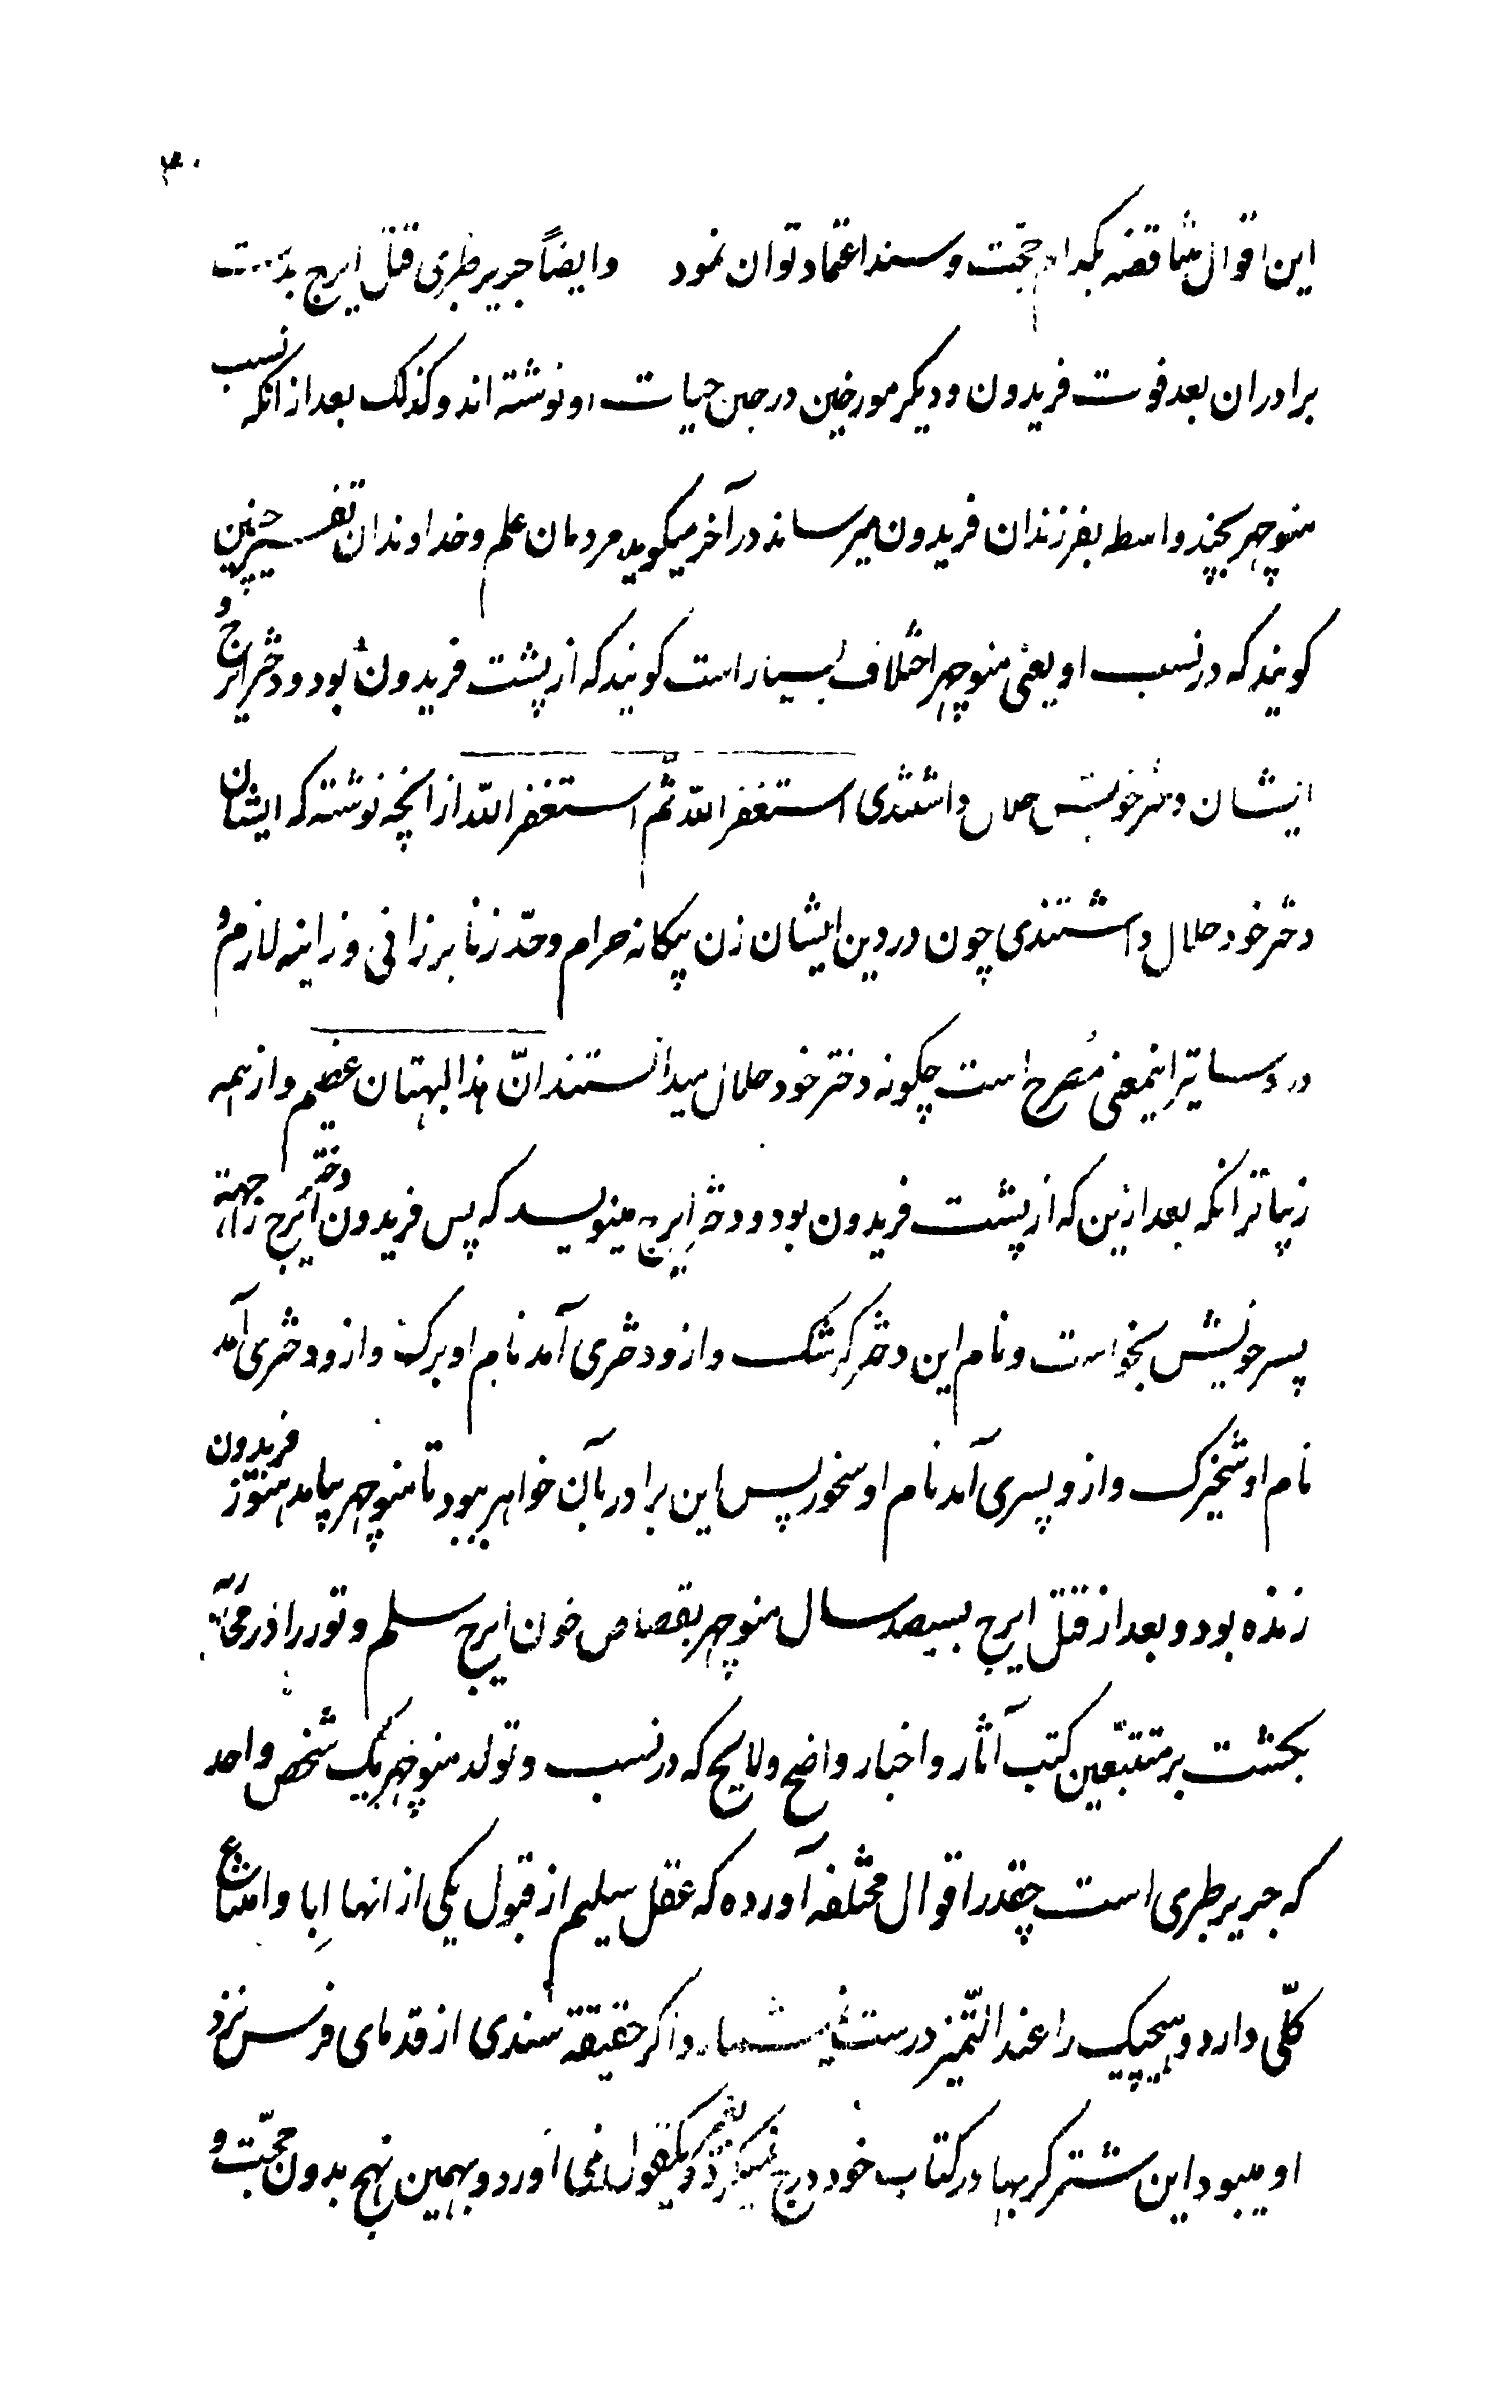 ۳۰
این اقوال متناقضه بکدام حجّت و سند اعتماد توان نمود وایضاً جریر طبری قتل ایرج بدست
برادران بعد فوت فریدون و دیکر مورخین در حین حیات او نوشته اند و کذلک بعد از انکه نسب
منوچهر بچند واسطه بفرزندان فریدون میرساند در آخر میکوید مردمان علم و خداوندان تفسیر چنین
کویند که در نسب او یعنی منوچهر اختلاف بسیار است کویند که از پشت فریدون بود و دختر ایرج و
ایشان دختر خویش حلال داشتندی استغفر اللّه ثم استغفر اللّه از انچه نوشته که ایشان
دختر خود حلال داشتندی چون در دین ایشان زن بیکانه حرام و حدّ زنا بر زانی و زانیه لازم و
در دساتیر اینمعنی مُصرح است چکونه دختر خود حلال میدانستند انّ هذا لبهتان عظیم و از همه
زیباتر انکه بعد ازین که از پشت فریدون بود و دختر ایرج مینویسد که پس فریدون دختر ایرج را بجهة
پسر خویش بخواست و نام این دختر کوشک و ازو دختری آمد نام او و ازو دختری آمد
نام او و ازو پسری آمد نام او پس این برادر بآن خواهر ببود تا منوچهر بیامد هنوز فریدون
زنده بود و بعد از قتل ایرج بسیصد سال منوچهر بقصاص خون ایرج سلم و تور را در محاربه
بکشت بر متتبّعین کتب آثار و اخبار واضح و لایح که در نسب و تولد منوچهر یک شخص واحد
که جریر طبری است چقدر اقوال مختلفه آورده که عقل سلیم از قبول یکی از انها اِبا و امتناع
کلّی دارد و هیچیک را عند التّمیز درست نیشمارد و اکر حقیقة سندی از قدمای فرس نزد
او میبود این شتر کربها در کتاب خود درج نمیکرد و یقول لهم نمی آورد و بهمین نهج بدون حجّت و